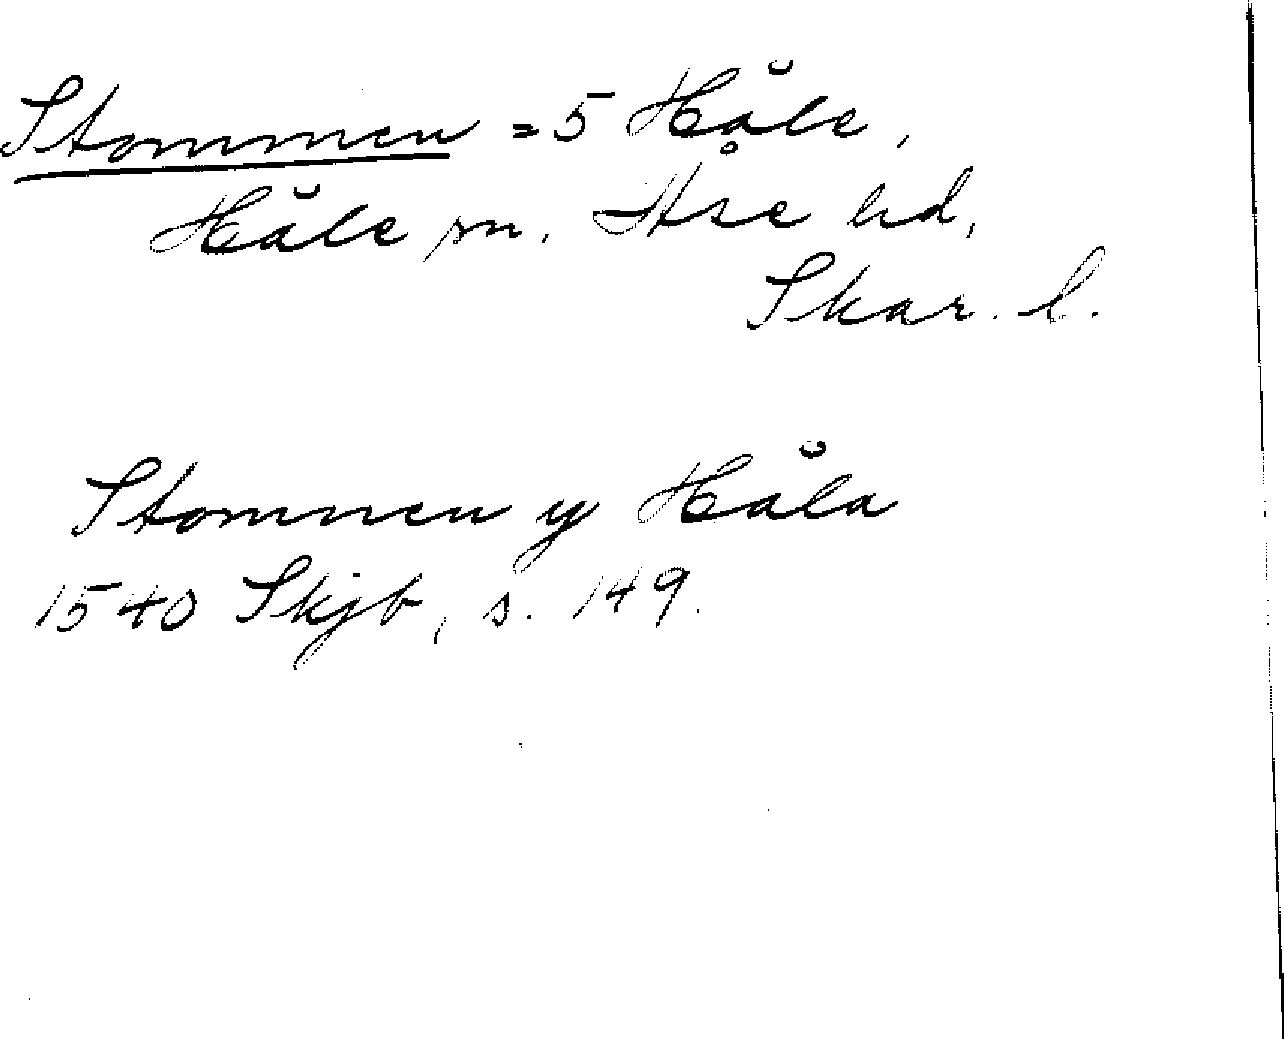 Stommen = 5 Håle,
Håle sn. Åse hd,
Skar. l.
Stommen y Håla
1540 Skjb, s. 149.